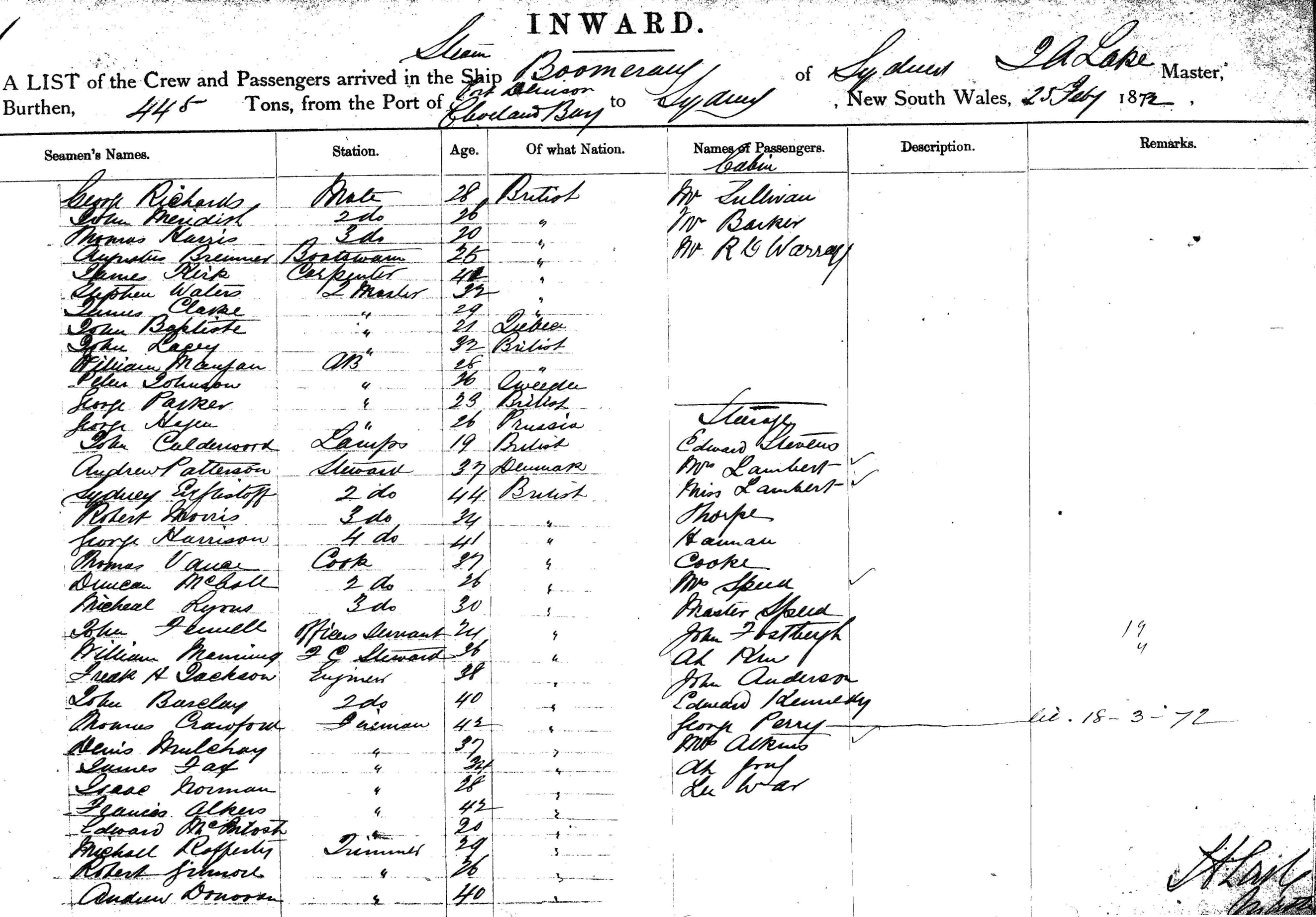 INWARD.
Steam
A LIST of the Crew and Passengers arrived in the Ship Boomerang of Sydney J A Lake Master,
Port Denison
Burthen, 445 Tons, from the Port of Cleveland Bay to Sydney, New South Wales, 25 Feby 1872,
Seamen's Names. Station. Age. Of what Nation. Names of Passengers. Description. Remarks.
Cabin
George Richards Mate 28 British Mr Sullivan
John Meridish 2 do 26 " Mr Barker
Thomas Harris 3 do 20 "
Mr R G Warray
Augustus Brenner Boatswain 25 "
James Kirk Carpenter "
Stephen Waters 2 Master 32 "
James Clarke " 29 "
John Baptiste " 21
John Lacey " 32 British
William AB 28 "
Peter Johnson " 26 Sweeden
George Parker " 23 British
George Hagen " 26 Prussia
Steerage
John Calderwood Lamps 19 British Edward Stevens
Andrew Patterson Steward 37 Denmark Mrs Lambert ✓
Sydney 2 do 44 British Miss Lambert ✓
Robert Morris 3 do 34 " Thorpe
George Harrison 4 do 41 " Hannan
Thomas Vanae Cook 37 " Cooke
Duncan McColl 2 do 26 " Mrs Speed ✓
Micheal Lyons 3 do 30 " Master Speed
John Fennell Officers Servant 24 " John 19
William Manning F C Steward 36 " Ah Kew "
Freak H Jackson Enginer 38 " John Anderson
John Barclay 2 do 40 " Edward Kennedy
Thomas Crawford Fireman 42 " George Perry 18-3-72
Denis Mulchay " 37 " Mrs Atkins ✓
James Fax " 34 " Ah
Isaac Norman " 28 " Lee War
Francis Alkers " 42 "
Edward McIntosh " 20 "
Michall Rafferty Trimmer 29 "
Robert Gilmore " 26 "
Andrew Donovan " 40 "